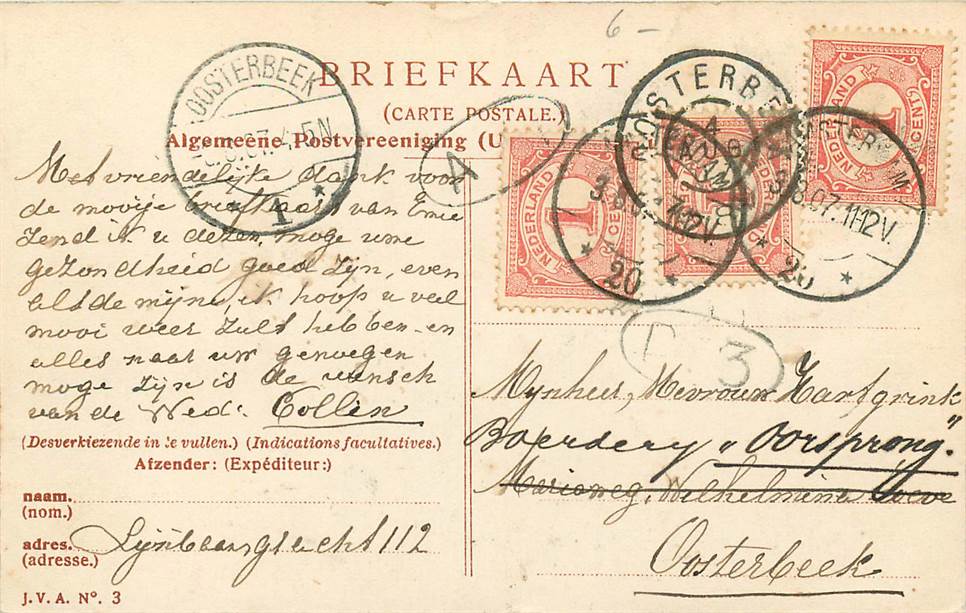 6 -
BRIEFKAART
(CARTE POSTALE.)
Algemeene Postvereeniging (U
OOSTERBEEK
4-5N
1
A
NEDERLAND
1
CENT
NEDERLAND
1
CENT
NEDERLAND
1
CENT
OOSTERBE
3.8.0
11-12V.
20
3.8.07.11-12V.
20
3
Met vriendelijke dank voor
de mooije briefkaart van Emie
zend ik u dezen, moge uwe
gezondheid goed zijn, even
als de mijne, ik hoop u veel
mooi weer zult hebben en
alles naar uw genoegen
moge zijn is de wensch
van de Wed: Collin
(Desverkiezende in te vullen.) (Indications facultatives.)
Afzender: (Expéditeur:)
naam.
(nom.)
adres. Lijnbaansgracht 112
(adresse.)
J. V. A. Nº. 3
Mynheer, Mevrouw Hartgrink
Boerdery "Oorsprong."
Marioweg, Wilhelmina
Oosterbeek